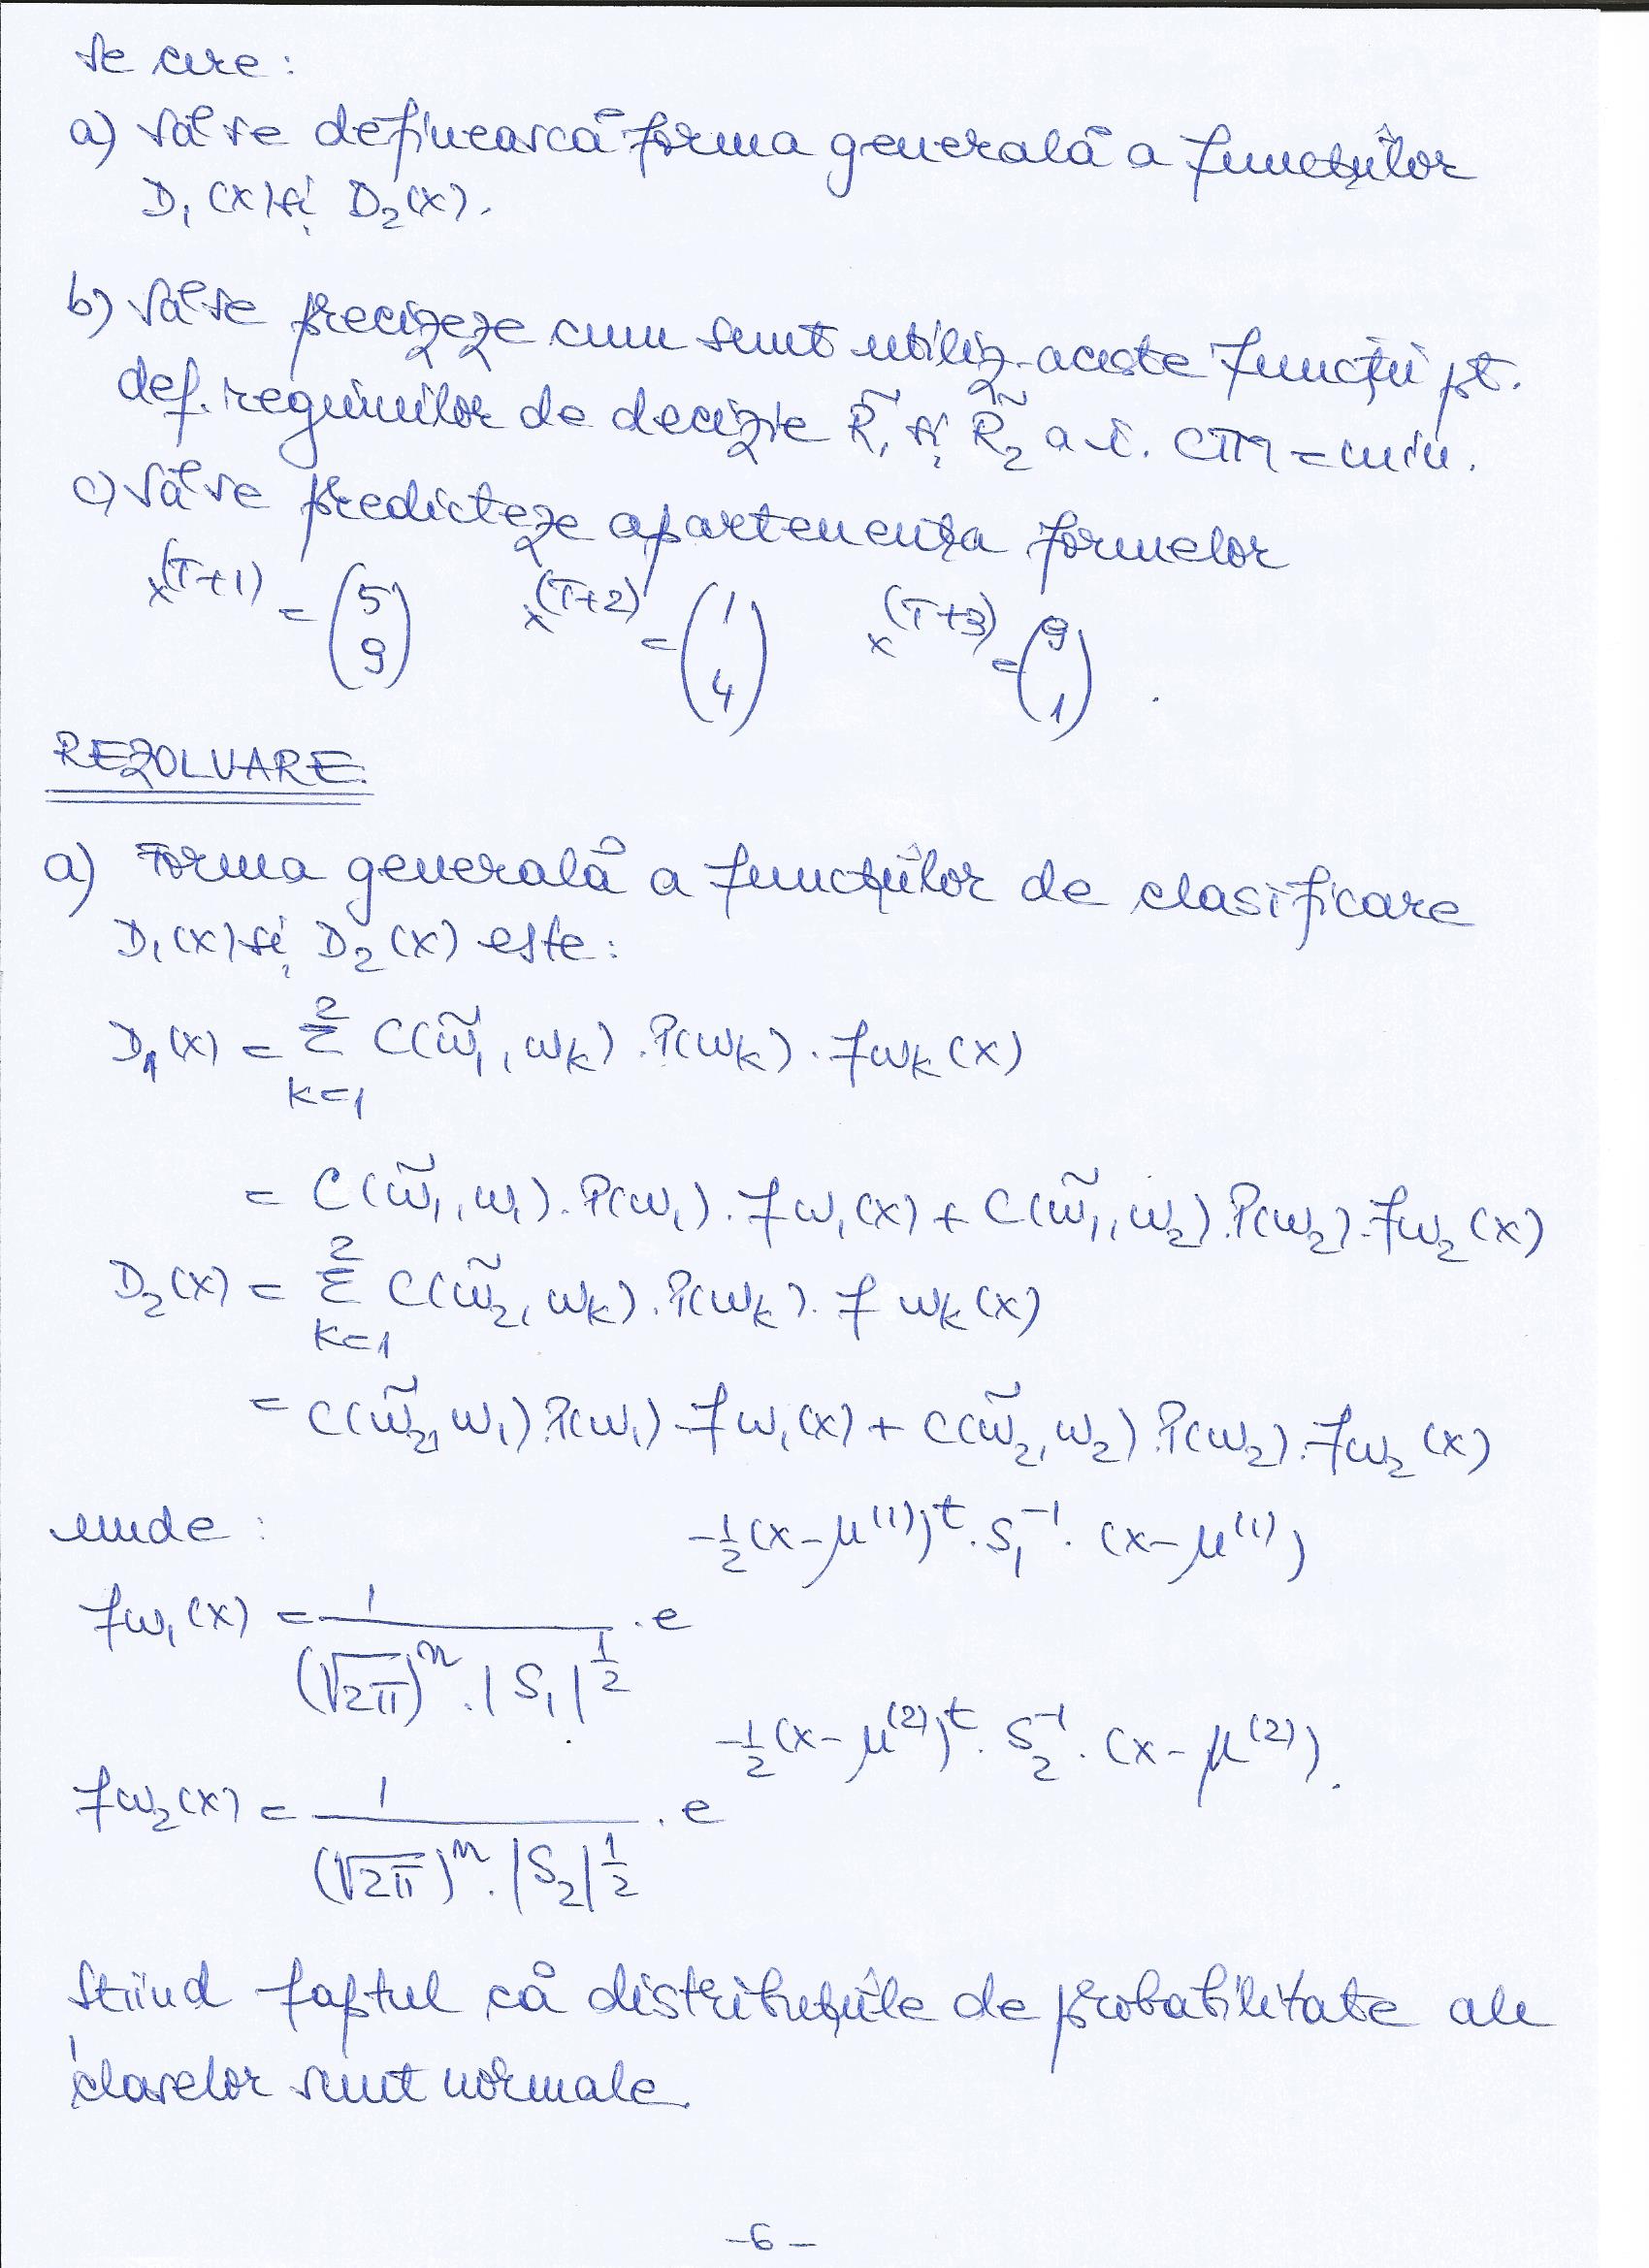 Se cere:
a) Să se definească forma generală a funcțiilor
D₁(x) și D₂(x).
b) Să se precizeze cum sunt utiliz. aceste funcții pt.
def. regiunilor de decizie R̃₁ și R̃₂ a.î. CTM = min.
c) Să se predicteze apartenența formelor
x^(T+1) = (5 9) x^(T+2) = (1 4) x^(T+3) = (9 1).
REZOLVARE.
a) Forma generală a funcțiilor de clasificare
D₁(x) și D₂(x) este:
D₁(x) = Σ_{k=1}^{2} C(ω̃₁, ωk) · P(ωk) · fωk(x)
= C(ω̃₁, ω₁) · P(ω₁) · fω₁(x) + C(ω̃₁, ω₂) · P(ω₂) · fω₂(x)
D₂(x) = Σ_{k=1}^{2} C(ω̃₂, ωk) · P(ωk) · fωk(x)
= C(ω̃₂, ω₁) · P(ω₁) · fω₁(x) + C(ω̃₂, ω₂) · P(ω₂) · fω₂(x)
unde:
fω₁(x) = 1 / ((√2π)^n · |S₁|^(1/2)) · e^(-1/2 (x-μ^(1))^t · S₁^-1 · (x-μ^(1)))
fω₂(x) = 1 / ((√2π)^n · |S₂|^(1/2)) · e^(-1/2 (x-μ^(2))^t · S₂^-1 · (x-μ^(2))).
Știind faptul că distribuțiile de probabilitate ale
claselor sunt normale.
-6-